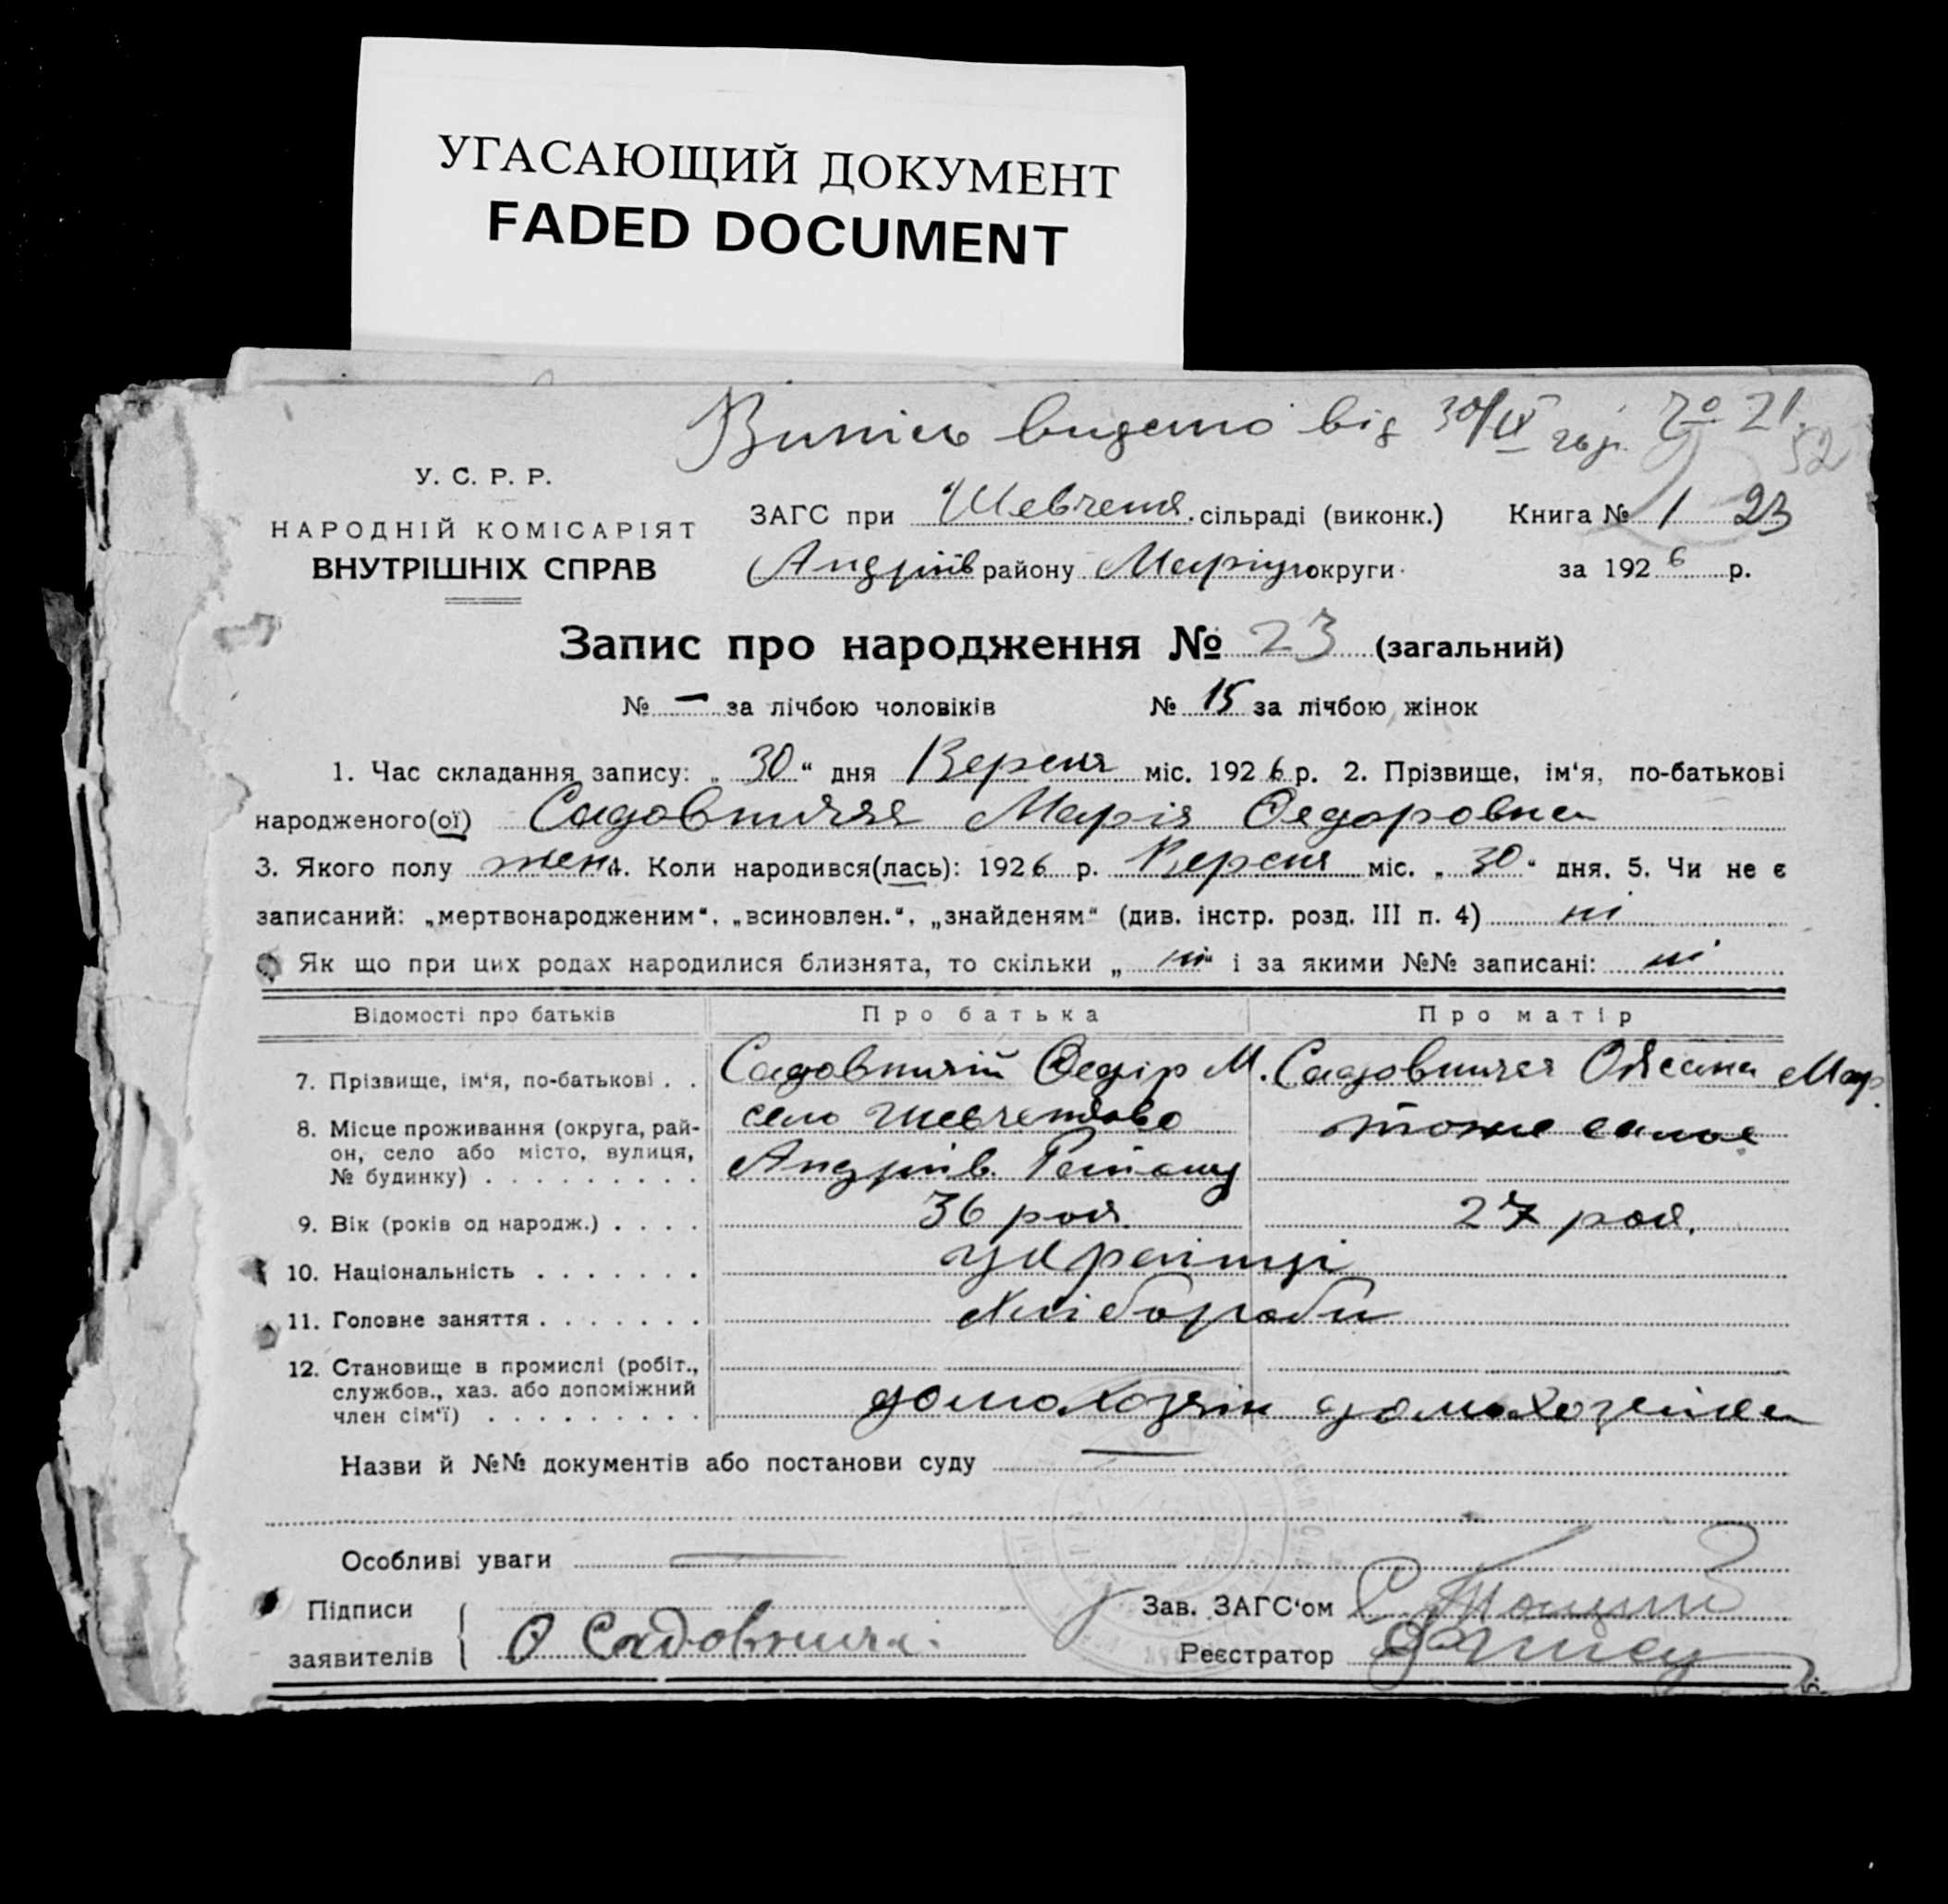 УГАСАЮЩИЙ ДОКУМЕНТ
FADED DOCUMENT
Випись видано від 30/IX 26 р. № 21
52
У. С. Р. Р.
НАРОДНІЙ КОМІСАРІЯТ
ВНУТРІШНІХ СПРАВ
ЗАГС при Шевченк. сільраді (виконк.) Книга № 1 23
Андріїв району Маріуп округи за 1926 р.
Запис про народження № 23 (загальний)
№ — за лічбою чоловіків № 15 за лічбою жінок
1. Час складання запису: „30“ дня Вересня міс. 1926 р. 2. Прізвище, ім‘я, по-батькові
народженого(ої) Садовничая Марія Федоровна
3. Якого полу жен 4. Коли народився(лась): 1926 р. Вересня міс. „30“ дня. 5. Чи не є
записаний: „мертвонародженим“, „всиновлен.“, „знайденям“ (див. інстр. розд. III п. 4) ні
Як що при цих родах народилися близнята, то скільки „ні“ і за якими №№ записані: ні
Відомості про батьків Про батька Про матір
7. Прізвище, ім‘я, по-батькові . . Садовничій Федір М. Садовничая Оксана Мар.
8. Місце проживання (округа, рай- село Шевченково тоже самое
он, село або місто, вулиця, Андріїв. Району
№ будинку) . . . . . . . . .
9. Вік (років од народж.) . . . . 36 рок. 27 рок.
10. Національність . . . . . . . українці
11. Головне заняття . . . . . . . Хлібороби
12. Становище в промислі (робіт.,
службов., хаз. або допоміжний
член сім‘ї) . . . . . . . . . домохозяін домохозяйка
Назви й №№ документів або постанови суду —
Особливі уваги —
Підписи Зав. ЗАГС‘ом
заявителів О Садовнича. Реєстратор